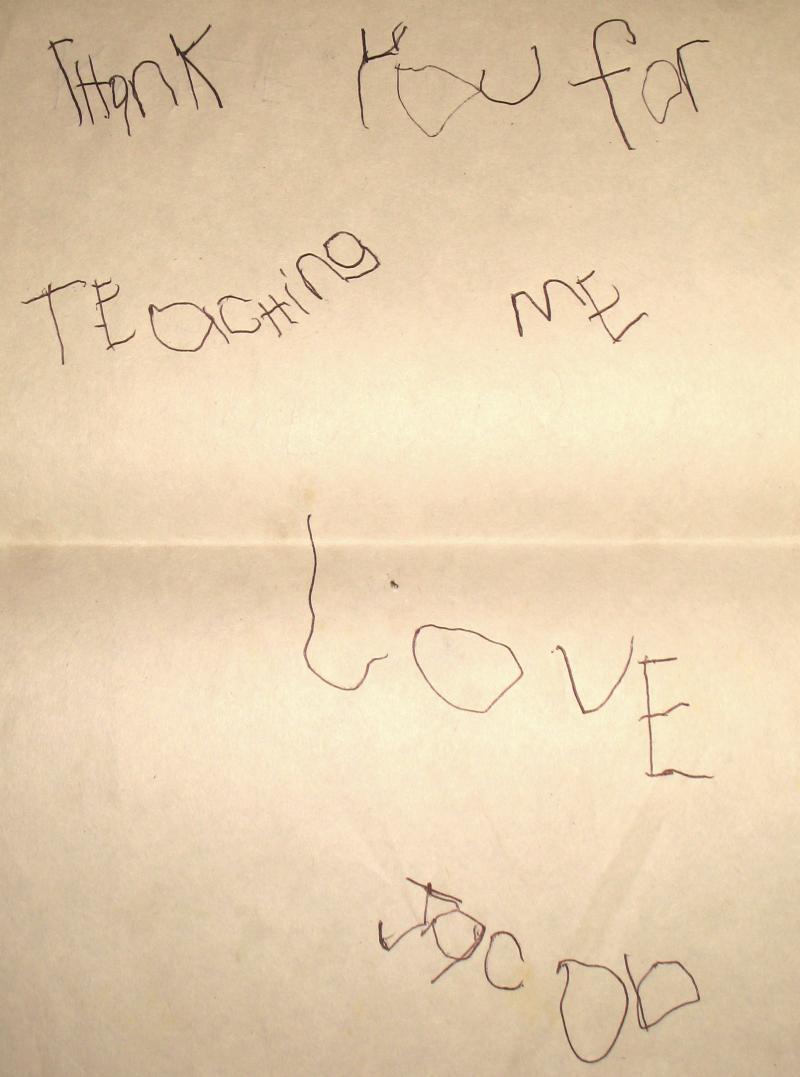 THanK You for
TEacHing ME
LOVE
Jacob